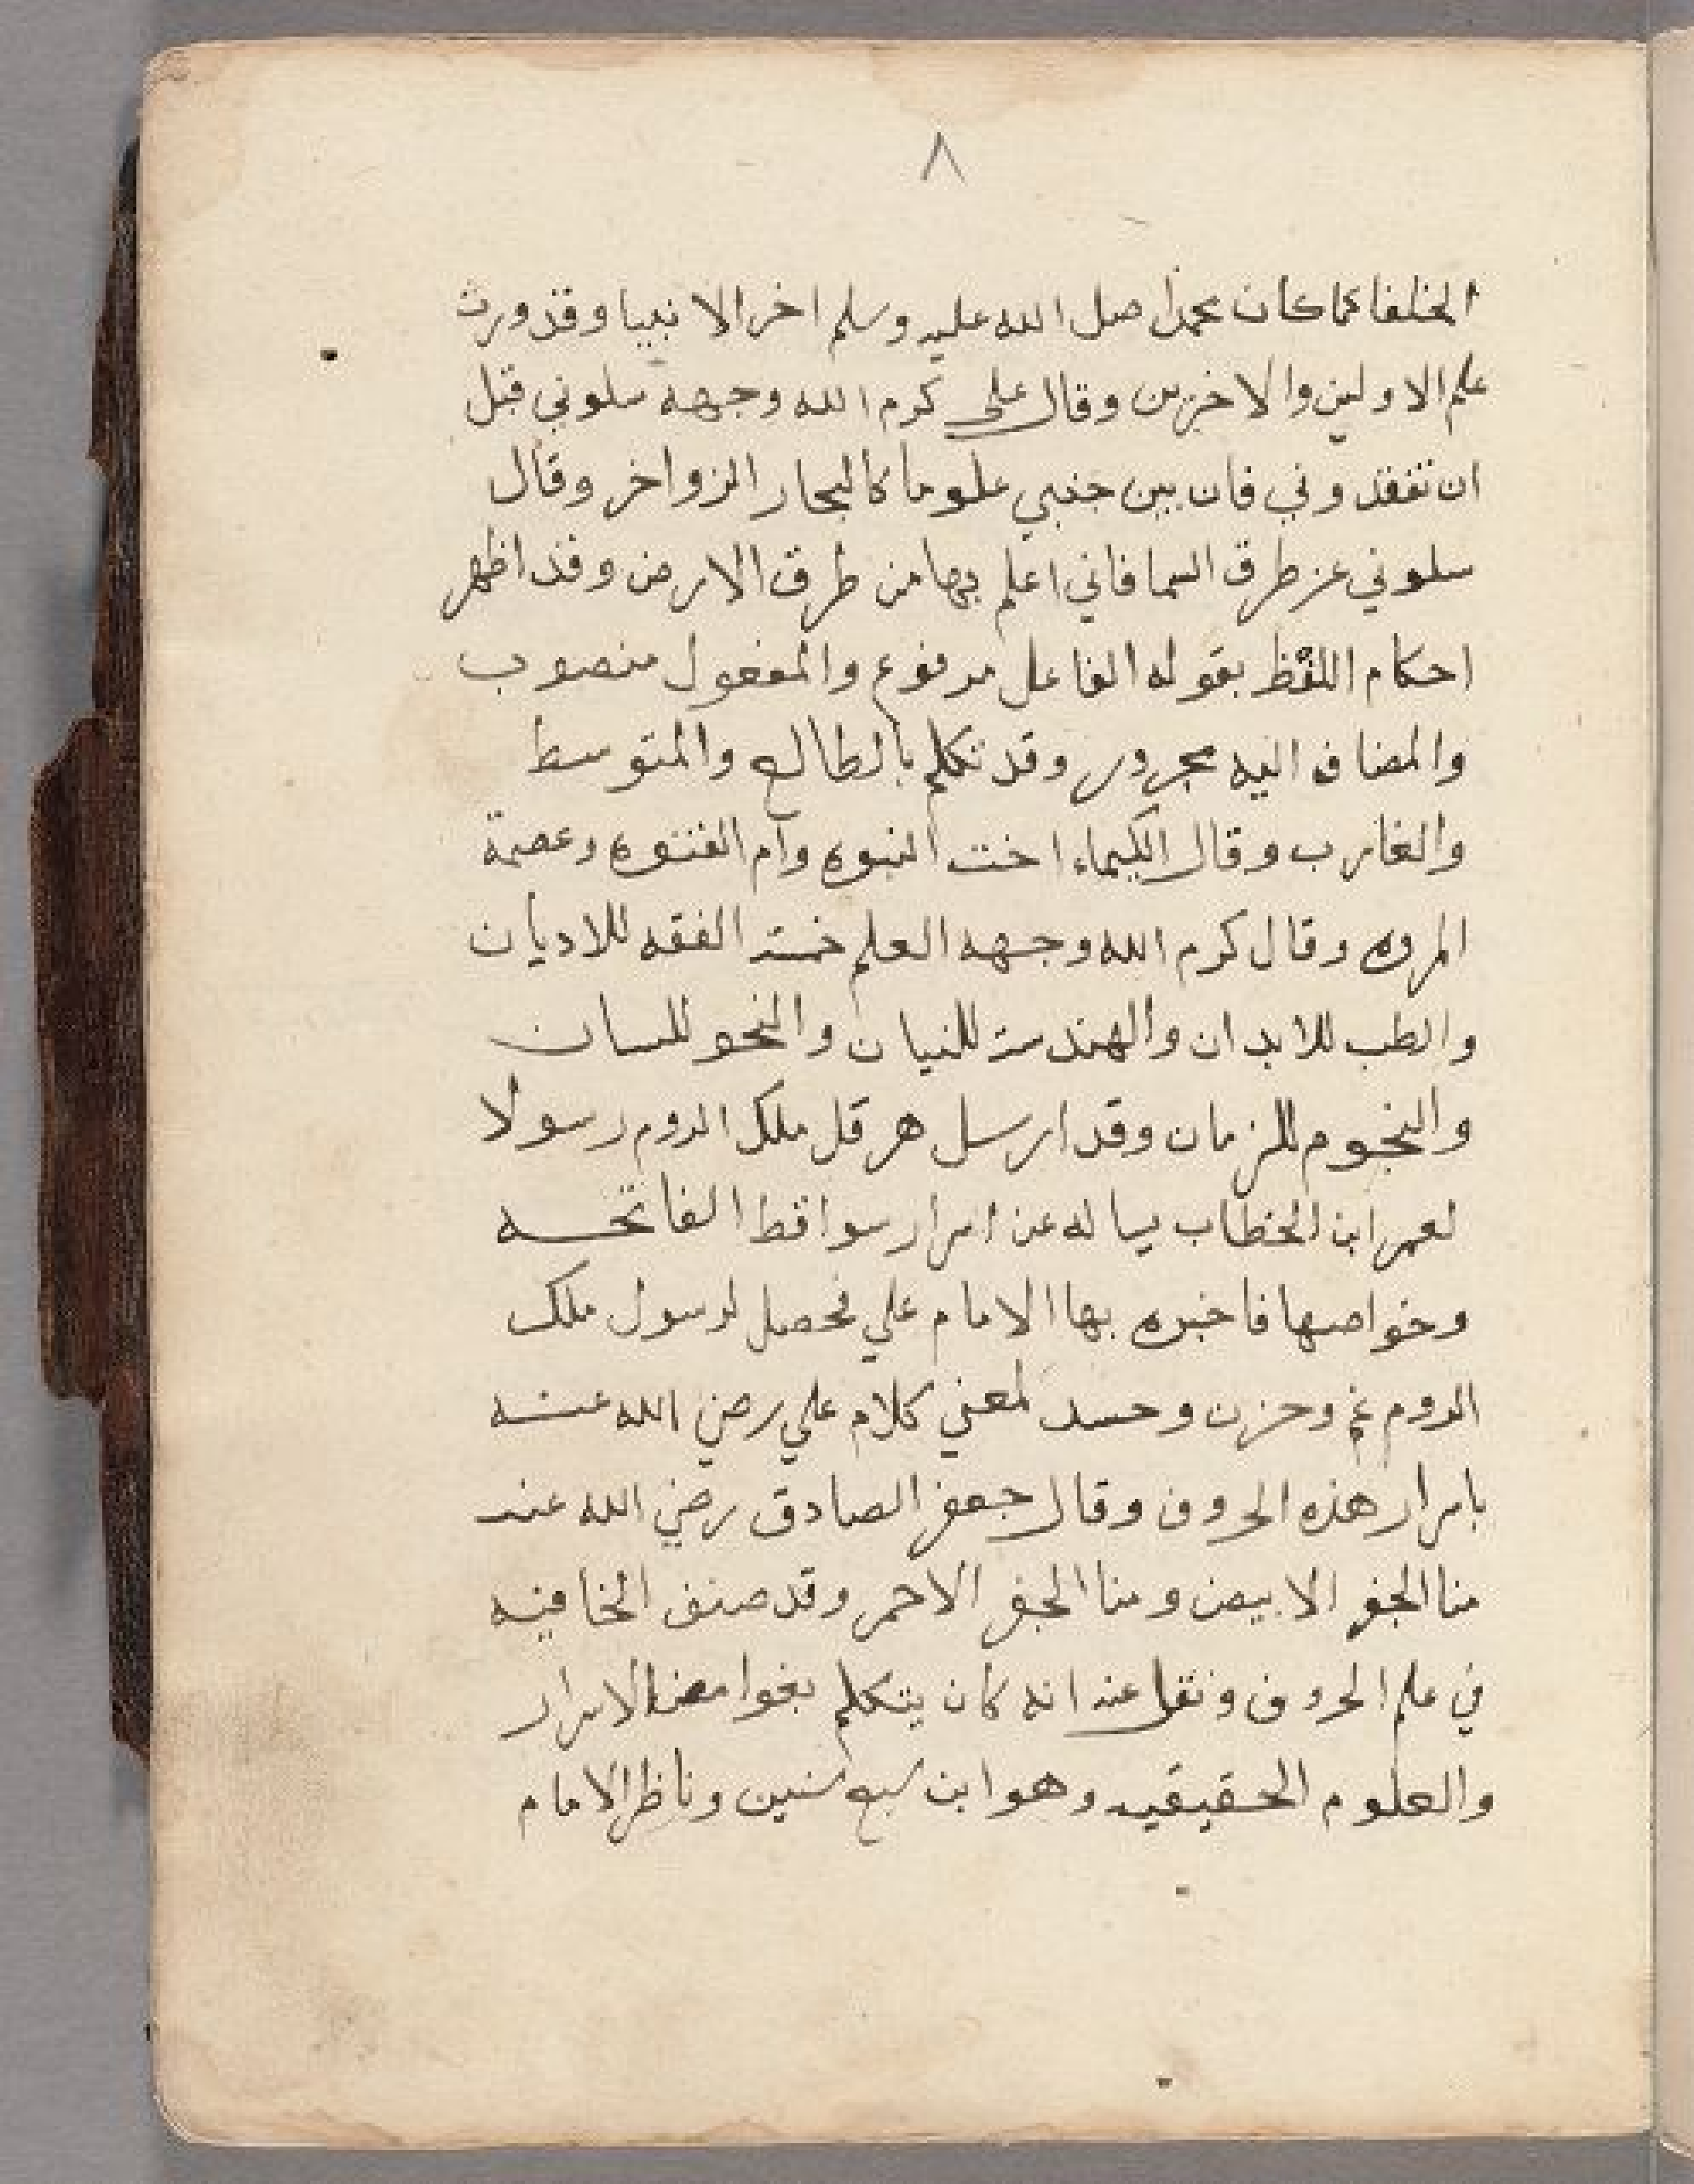 ٨
الخلفا كما كان محمدا صلى الله عليه وسلم اخر الانبيا وقد ورث
علم الاولين والاخرين وقال علي كرم الله وجهه سلوني قبل
ان تفقدوني فان بين جنبي علوما كالبحار الزواخر وقال
سلوني عن طرق السما فاني اعلم بها من طرق الارض وقد اظهر
احكام اللفظ بقوله الفاعل مرفوع والمفعول منصوب
والمضاف اليه مجرور وقد تكلم بالطالع والمتوسط
والغارب وقال الكيماء اخت النبوه وام الفتوه وعصمة
المروه وقال كرم الله وجهه العلم خمسة الفقه للاديان
والطب للابدان والهندسة للبنيان والنحو للسان
والنجوم للزمان وقد ارسل هرقل ملك الروم رسولا
لعمر ابن الخطاب يساله عن اسرار سواقط الفاتحه
وخواصها فاخبره بها الامام علي فحصل لرسول ملك
الروم غم وحزن وحسد لمعني كلام علي رضي الله عنه
باسرار هذه الحروف وقال جعفر الصادق رضي الله عنه
منا الجفر الابيض ومنا الجفر الاحمر وقد صنف الخافيه
في علم الحروف ونقل عنه انه كان يتكلم بغوامض الاسرار
والعلوم الحقيقيه وهو ابن سبع سنين وناظر الامام